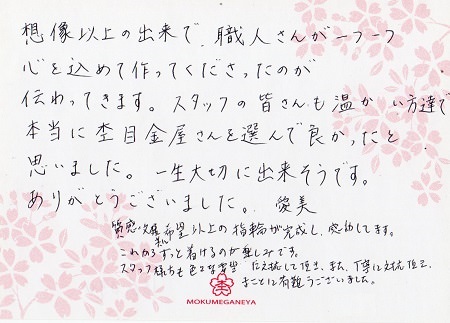 想像以上の出来で、職人さんが一つ一つ
心を込めて作ってくださったのが
伝わってきます。スタッフの皆さんも温かい方達で
本当に杢目金屋さんを選んで良かったと
思いました。一生大切に出来そうです。
ありがとうございました。 愛美
質感 希望以上の指輪が完成し、感动してます。
これからずっと着けるのが楽しみです。
スタッフ様方も色々な要望 に対応して頂き、また、丁寧に対応頂き、
まことに有難うございました。
MOKUMEGANEYA